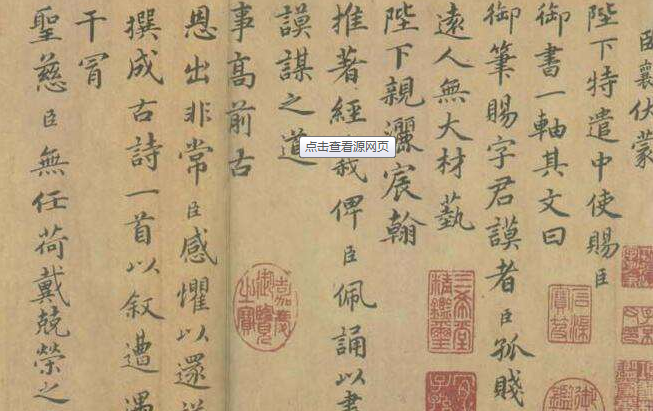 臣襄伏蒙
陛下特遣中使賜臣
御書一軸其文曰
御筆賜字君謨者臣孤賤
遠人無大材藝
陛下親灑宸翰
推著經義俾臣佩誦以
謨謀之道
事高前古
恩出非常臣感懼以還
撰成古詩一首以叙遭遇
干冒
聖慈臣無任荷戴兢榮之
点击查看源网页
嘉慶御覽之寶
三希堂精鑑璽
宜子孫